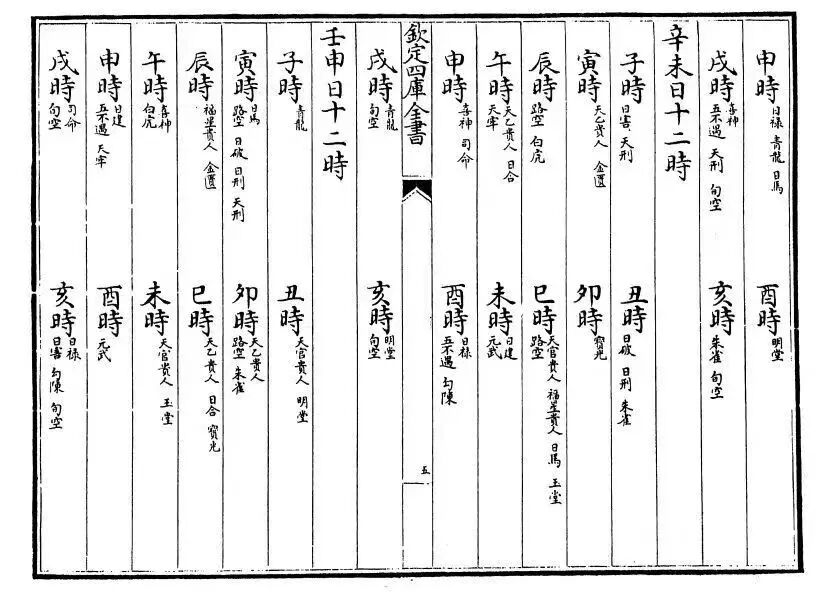 申時 日祿 青龍 日馬 酉時 明堂
戌時 喜神 五不遇 天刑 旬空 亥時 朱雀 旬空
辛未日十二時
子時 日害 天刑 丑時 日破 日刑 朱雀
寅時 天乙貴人 金匱 卯時 寶光
辰時 路空 白虎 巳時 天官貴人 路空 福星貴人 日馬 玉堂
午時 天乙貴人 天牢 日合 未時 日建 元武
申時 喜神 司命 酉時 日祿 五不遇 勾陳
欽定四庫全書 五
戌時 青龍 旬空 亥時 明堂 旬空
壬申日十二時
子時 青龍 丑時 天官貴人 明堂
寅時 日馬 路空 日破 日刑 天刑 卯時 天乙貴人 路空 朱雀
辰時 福星貴人 金匱 巳時 天乙貴人 日合 寶光
午時 喜神 白虎 未時 天官貴人 玉堂
申時 日建 五不遇 天牢 酉時 元武
戌時 司命 旬空 亥時 日祿 日害 勾陳 旬空